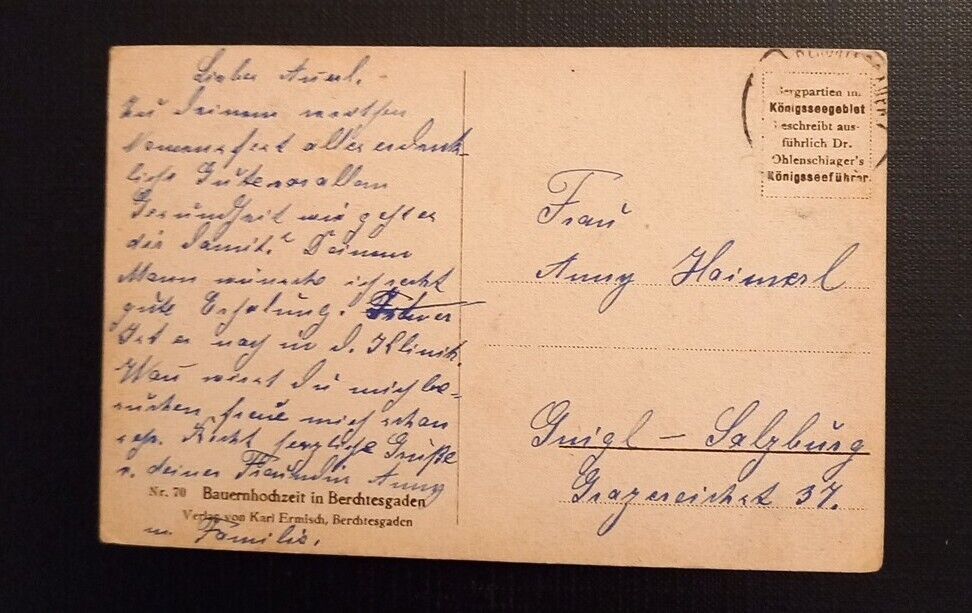 Liebe Annerl.
Zu Deinem
Namensfest aller erdenk
liche Gute vor allem
Gesundheit wie geht es
dir damit? Deinem
Mann wünsche ich recht
gute Erholung.
Ist er noch in d. Klinik.
Wann wirst Du mich be-
suchen, freue mich schon
sehr. Recht herzliche Grüße
v. deiner Freundin Anny
Nr. 70 Bauernhochzeit in Berchtesgaden
Verlag von Karl Ermisch, Berchtesgaden
m Familie.
Bergpartien im
Königsseegebiet
beschreibt aus-
führlich Dr.
Ohlenschlager's
Königsseeführer.
Frau
Anny Haimerl
Gnigl – Salzburg
37.